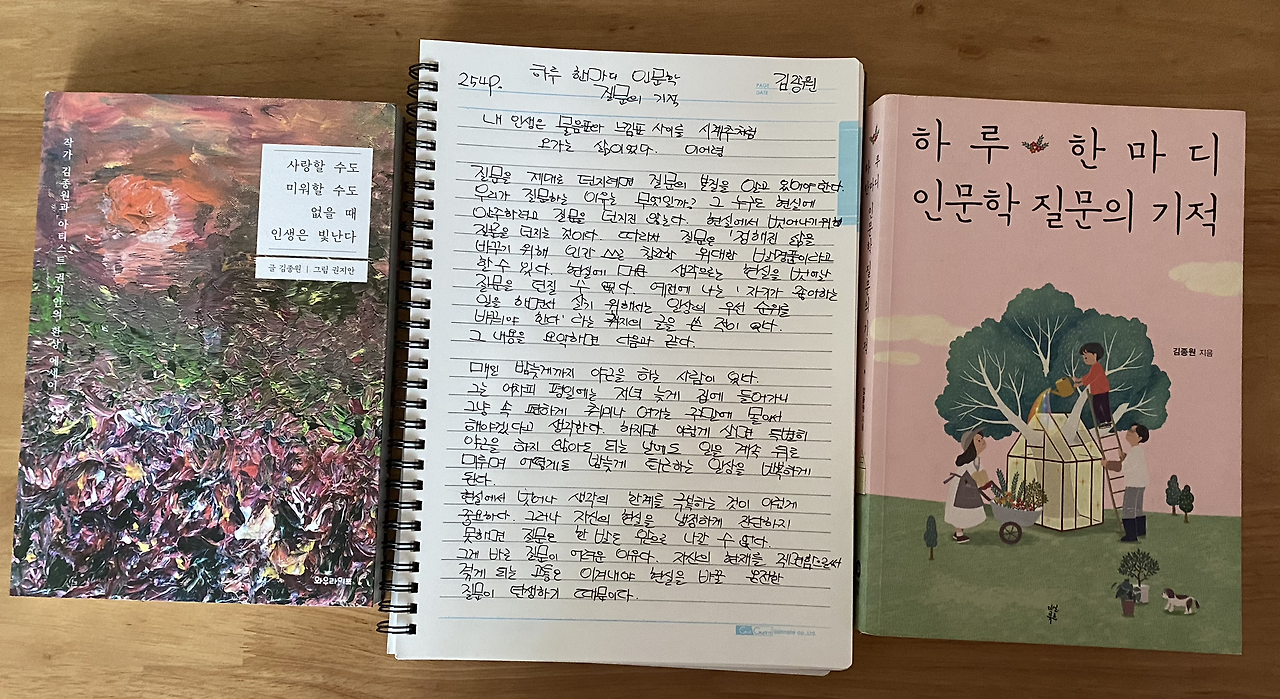 작가 김종원과 아티스트 권지안의 환상 에세이
사랑할 수도
미워할 수도
없을 때
인생은 빛난다
글 김종원 | 그림 권지안
와우라이프
254p.
하루 한마디 인문학
질문의 기적
PAGE
DATE
김종원
내 인생은 물음표와 느낌표 사이를 시계추처럼
오가는 삶이었다. 이어령
질문을 제대로 던지려면 질문의 본질을 알고 있어야 한다.
우리가 질문하는 이유는 무엇인가? 그 누구도 현실에
안주하려고 질문을 던지진 않는다. 현실에서 벗어나기 위해
질문을 던지는 것이다. 따라서 질문은 '정해진 삶을
바꾸기 위해 인간 스스로 발견한 위대한 발명품'이라고
할 수 있다. 현실에 머문 생각으로는 현실을 벗어난
질문을 던질 수 없다. 예전에 나는 '자기가 좋아하는
일을 하면서 살기 위해서는 일상의 우선 순위를
바꿔야 한다'라는 취지의 글을 쓴 적이 있다.
그 내용을 요약하면 다음과 같다.
매일 밤늦게까지 야근을 하는 사람이 있다.
그는 어차피 평일에는 저녁 늦게 집에 들어가니
그냥 속 편하게 취미나 여가는 주말에 몰아서
해야겠다고 생각한다. 하지만 이렇게 살면 특별히
야근을 하지 않아도 되는 날에도 일을 계속 뒤로
미루며 어떻게든 밤늦게 퇴근하는 일상을 반복하게
된다.
현실에서 벗어나 생각의 한계를 극복하는 것이 이렇게
중요하다. 그러나 자신의 현실을 냉정하게 진단하지
못하면 질문은 한 발도 앞으로 나갈 수 없다.
그게 바로 질문이 어려운 이유다. 자신의 현재를
겪게 되는 고통은 이겨내야 현실을 바꿀 온전한
질문이 탄생하기 때문이다.
하루 한마디
인문학 질문의 기적
김종원 지음
다산북스